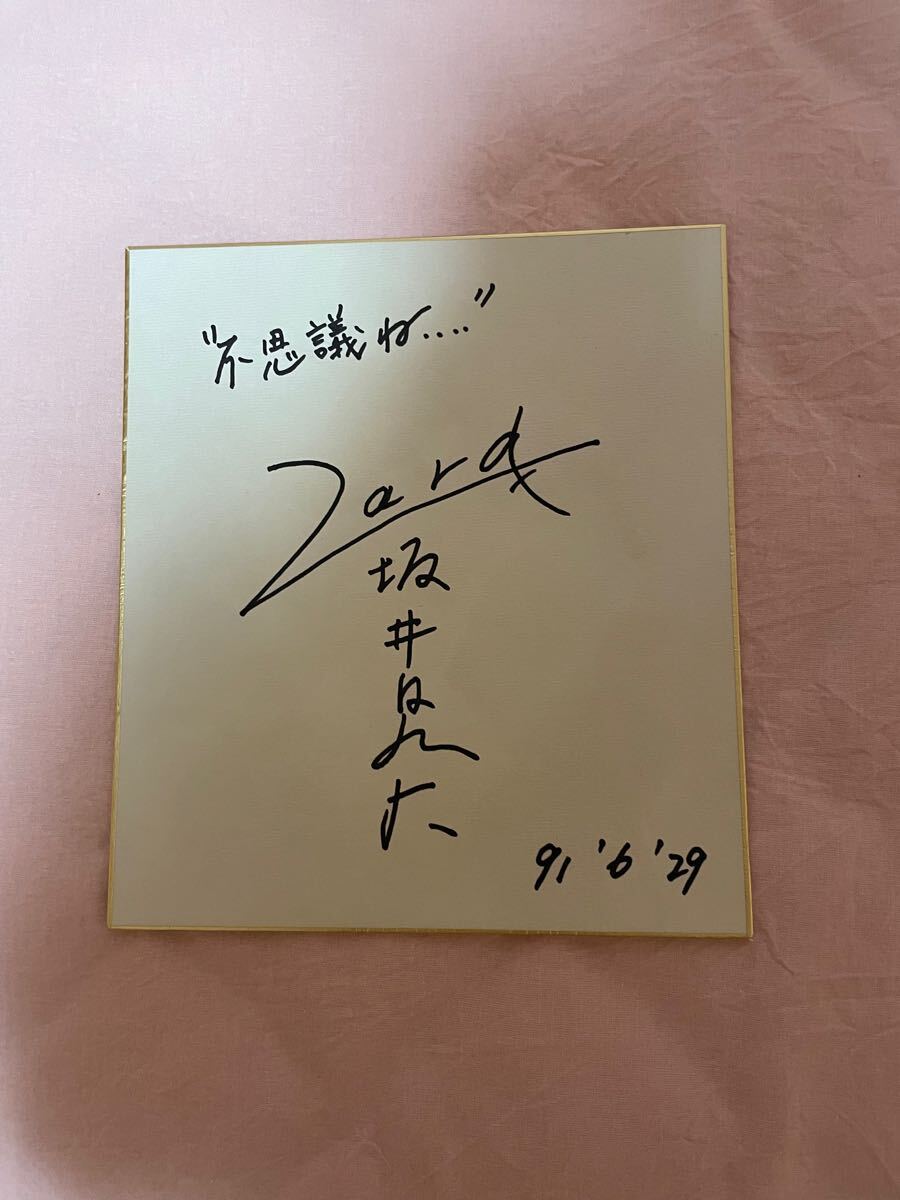 "不思議ね‥‥"
Zard
坂井泉水
91'6'29